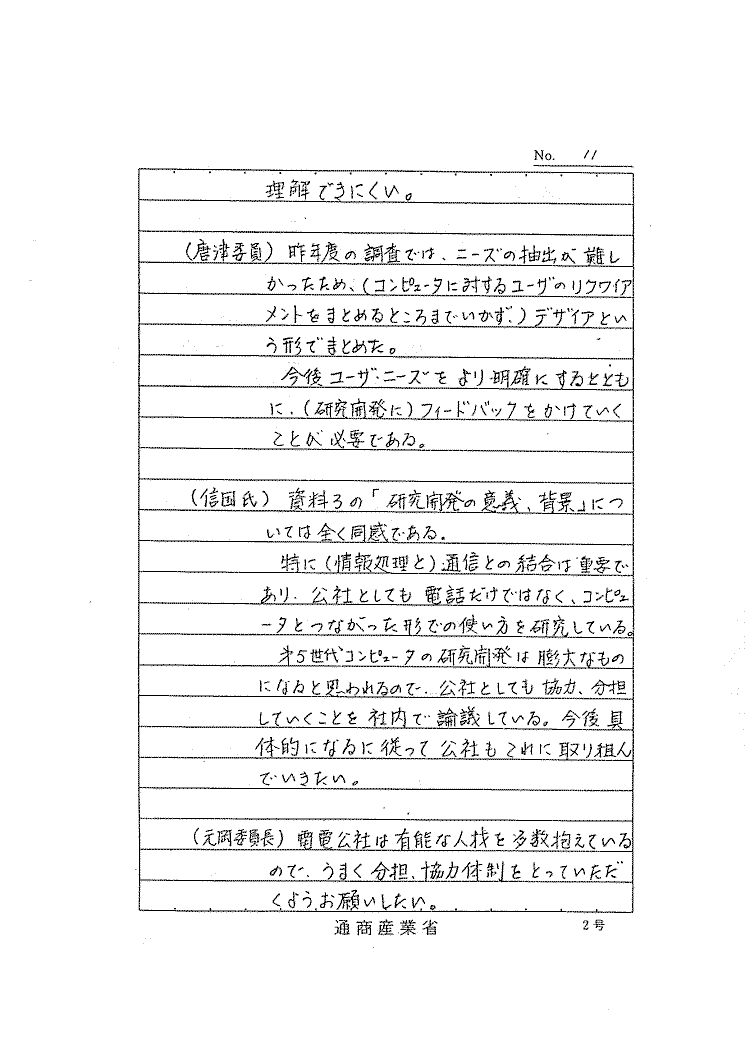 No. 11
理解できにくい。
(唐津委員) 昨年度の調査では、ニーズの抽出が難し
かったため、(コンピュータに対するユーザのリクワイア
メントをまとめるところまでいかず、)デザイアとい
う形でまとめた。
今後ユーザ・ニーズをより明確にするととも
に、(研究開発に)フィードバックをかけていく
ことが必要である。
(信国氏) 資料3の「研究開発の意義、背景」につ
いては全く同感である。
特に(情報処理と)通信との結合は重要で
あり、公社としても電話だけではなく、コンピュ
ータとつながった形での使い方を研究している。
第5世代コンピュータの研究開発は膨大なもの
になると思われるので、公社としても協力、分担
していくことを社内で論議している。今後具
体的になるに従って公社もこれに取り組ん
でいきたい。
(元岡委員長) 電電公社は有能な人材を多数抱えている
ので、うまく分担、協力体制をとっていただ
くよう、お願いしたい。
通商産業省 2号